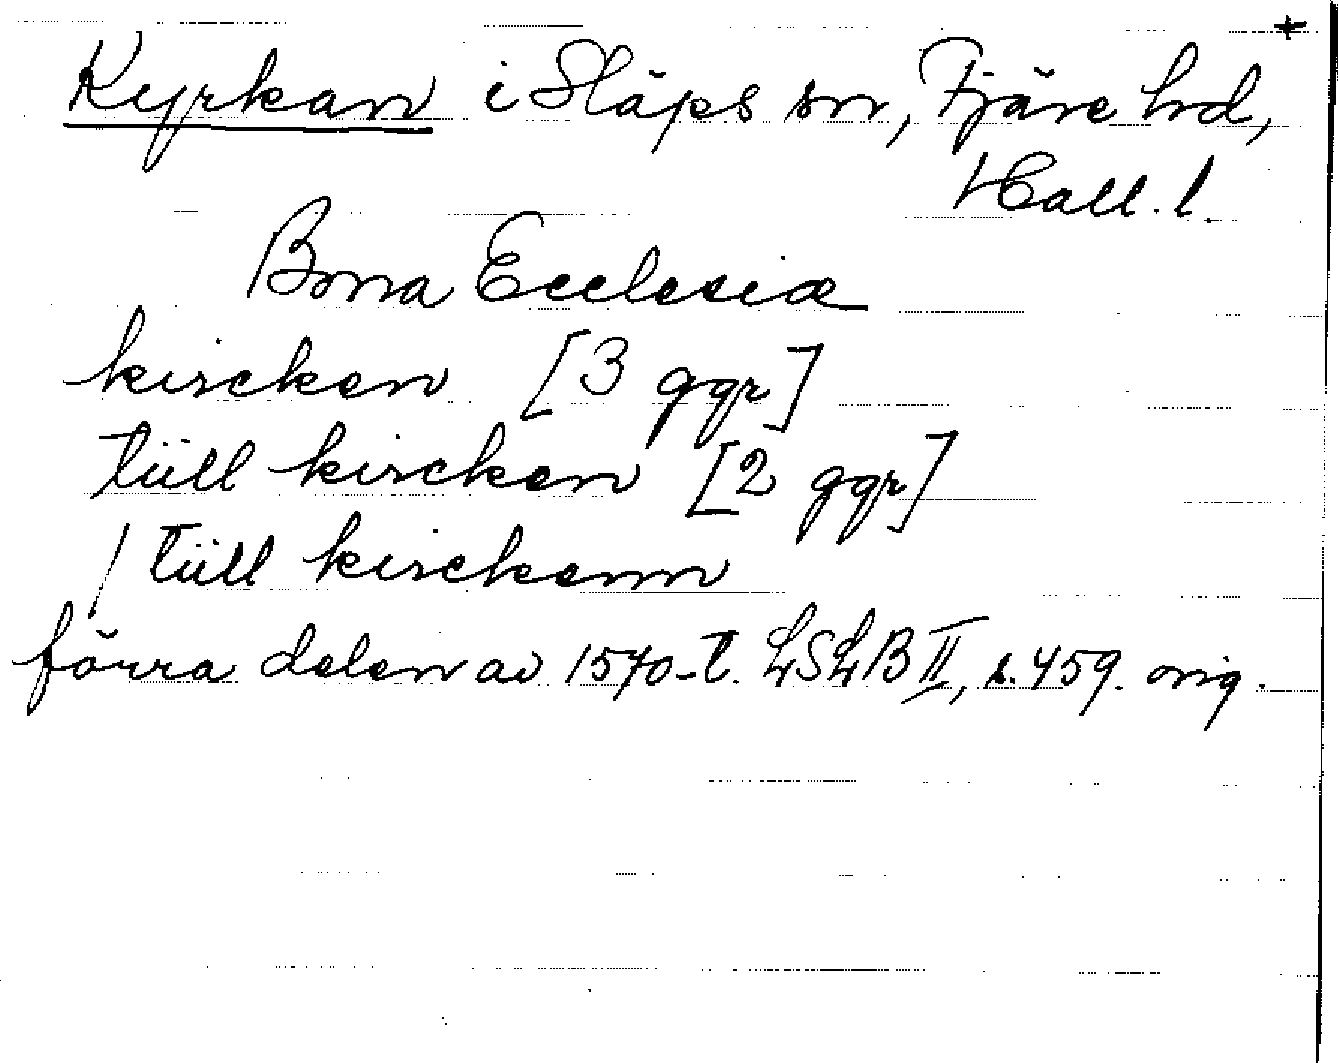 +
Kyrkan i Släps sn, Fjäre hd,
Hall. l.
Bona Ecclesiæ
kircken [3 ggr]
tüll kircken [2 ggr]
/ tüll kirckenn
förra delen av 1570-t. LSLB II, s. 459. orig.